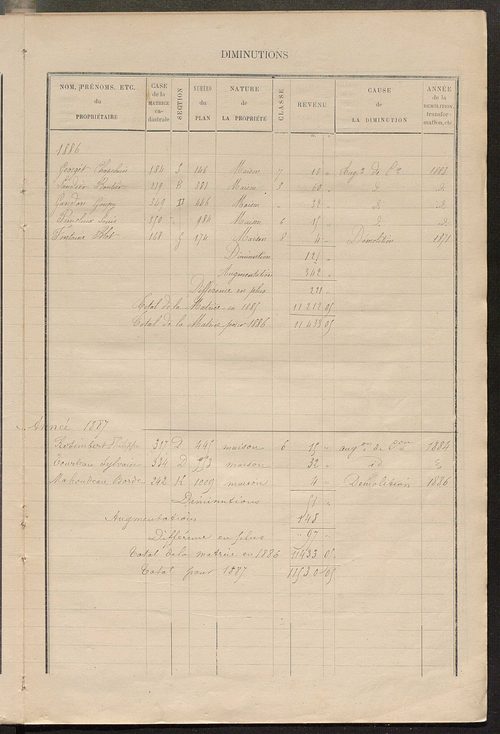 DIMINUTIONS
NOM, PRÉNOMS, ETC. du PROPRIÉTAIRE
CASE de la MATRICE ca- dastrale
SECTION
NUMÉRO du PLAN
NATURE de LA PROPRIÉTÉ
CLASSE
REVENU
CAUSE de LA DIMINUTION
ANNÉE de la DÉMOLITION, transfor- mation, etc.
1886
184 146 Maison 7 Aug. de C 1883
Maison 8 60 d° d°
349 D 446 Maison 32 d° d°
Louis 350 " 984 Maison 6 15 d° d°
Fontaine 168 G 174 Maison 8 4 Démolition 1871
Diminution 121
Augmentation 342
Différence en plus 221
Total de la Matrice en 1885 11212 05
Total de la Matrice pour 1886 11433 05
Année 1887
317 D 445 maison 6 15 " 1884
Sylvain 334 D maison 32 " id
Mahoudeau Borde 242 K 1009 maison 4 " Démolition 1886
Diminutions 51
Augmentations 148
Différence en plus 97
Total de la matrice en 1886 11433 05
Total pour 1887 11530 05